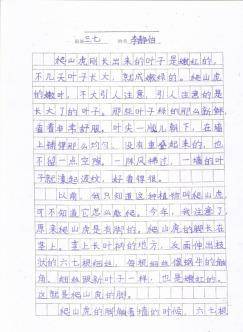 班级三七 姓名李静怡
爬山虎刚长出来的叶子是嫩红的,
不几天叶子长大,就成嫩绿的。爬山虎
的嫩叶,不大引人注意,引人注意的是
长大了的叶子。那些叶子绿的那么新鲜,
看着非常舒服。叶尖一顺儿朝下,在墙
上铺得那么均匀,没有重叠起来的,也
不留一点空隙。一阵风拂过,一墙的叶
子就漾起波纹,好看得很。
以前,我只知道这种植物叫爬山虎,
可不知道它怎么能爬。今年,我注意了,
原来爬山虎是有脚的。爬山虎的脚长在
茎上。茎上长叶柄的地方,反面伸出枝
状的六七根细丝,每根细丝像蜗牛的触
角。细丝跟新叶子一样,也是嫩红的。
这就是爬山虎的脚。
爬山虎的脚触着墙的时候,六七根